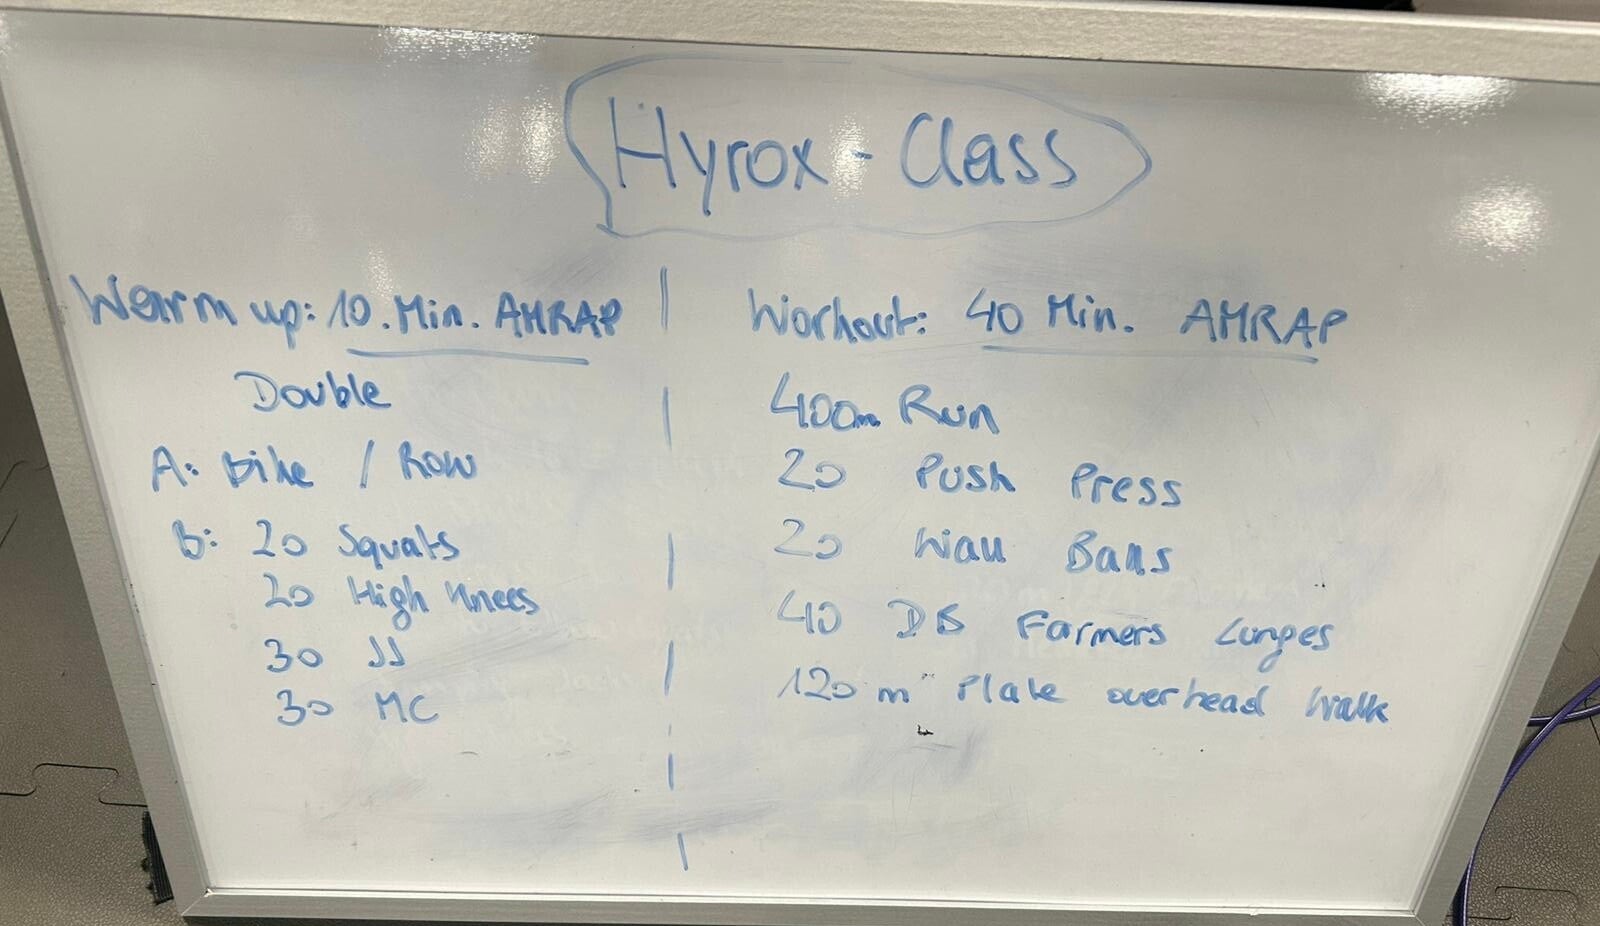 Hyrox - Class
Warm up: 10. Min. AMRAP
Double
A: Bike / Row
B: 20 Squats
20 High Knees
30 JJ
30 MC
Workout: 40 Min. AMRAP
400m Run
20 Push Press
20 Wall Balls
40 DB Farmers Lunges
120 m Plate overhead Walk